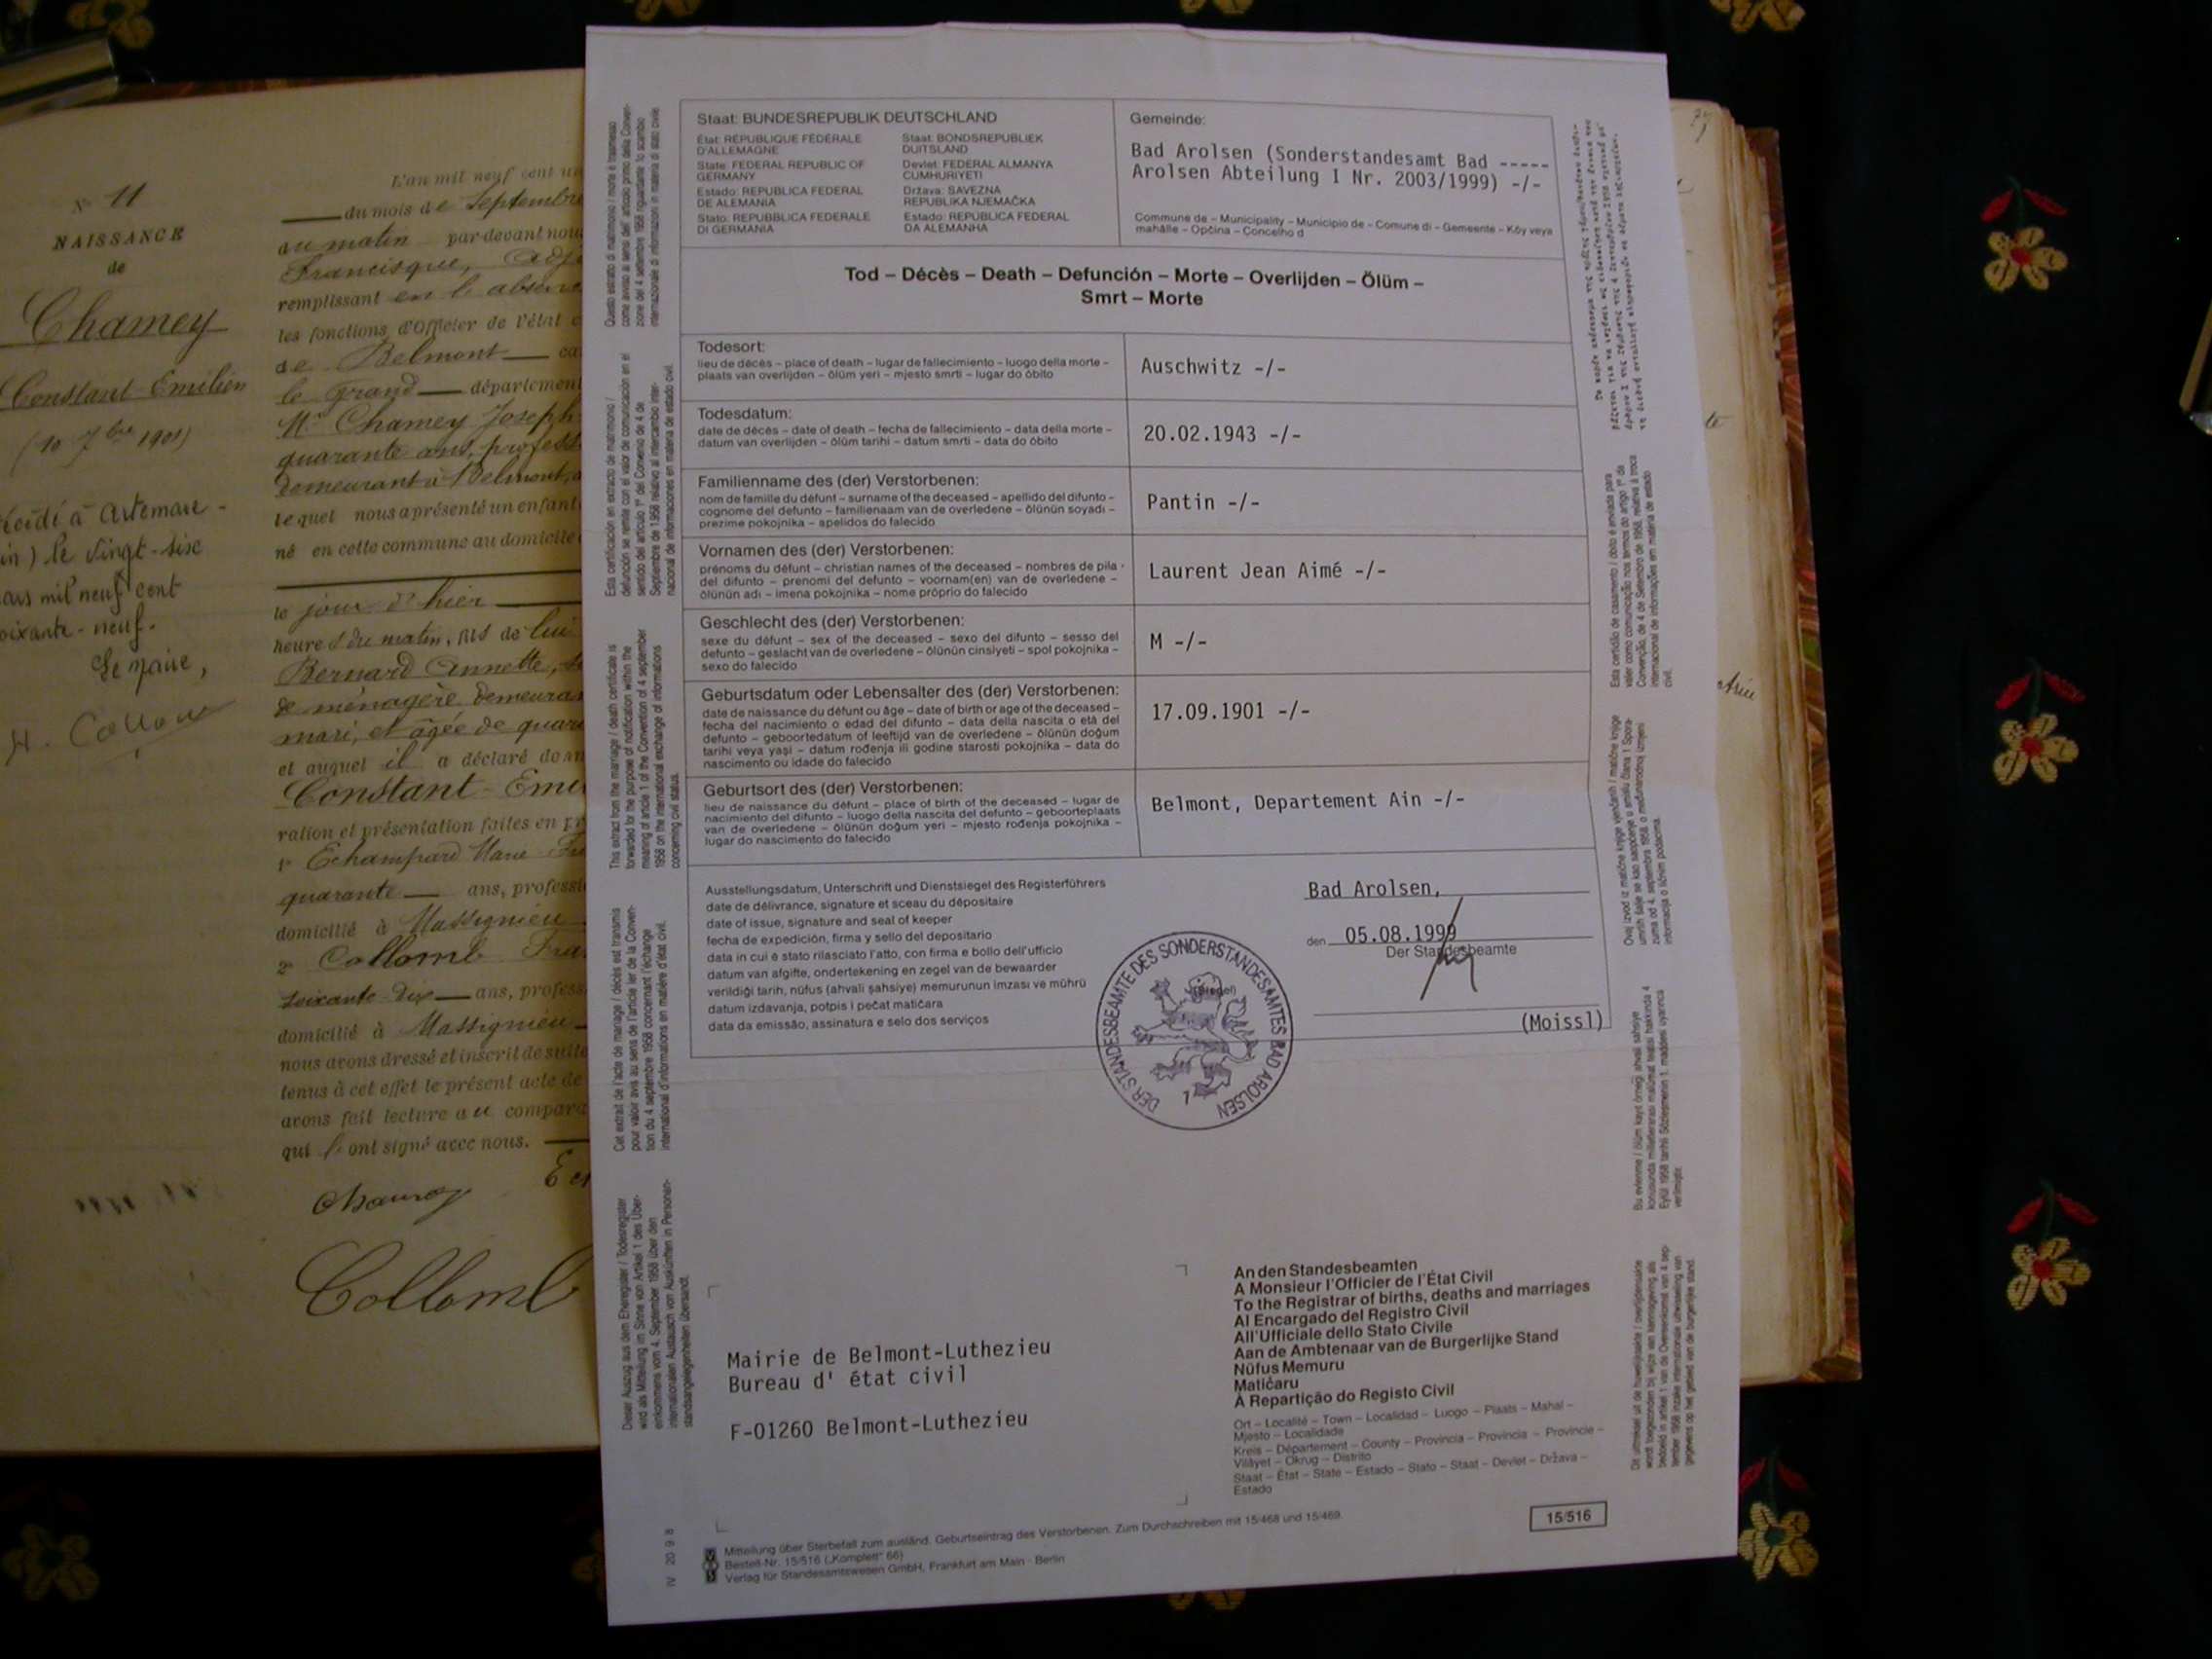 N° 11
NAISSANCE
de
Chamey
Constant Emilien
(10 7bre 1901)
à Artemare -
le vingt-six
mil neuf cent
soixante-neuf.
Le Maire,
H.
L'an mil neuf cent un
du mois de Septembre
du matin par-devant nous
Francisque, Adj
remplissant en l' absence
les fonctions d'Officier de l'état c
de Belmont ca
le Grand département
Mr Chamey Joseph
quarante ans, profess
demeurant à Belmont,
lequel nous a présenté un enfant
né en cette commune au domicile
le jour d'hier
heure s du matin, fils de lui
Bernard Annette,
de ménagère demeura
mari, et agée de quara
et auquel il a déclaré don
Constant-Emi
ration et présentation faites en pr
1° Echampard Marie
quarante ans, professi
domicilié à Massignieu
2° Collomb Fra
soixante-dix ans, profess
domicilié à Massignieu
nous avons dressé et inscrit de suite
tenus à cet effet le présent acte de
avons fait lecture au compara
qui l' ont signé avec nous.
Chamey
Collomb
Staat: BUNDESREPUBLIK DEUTSCHLAND
État: RÉPUBLIQUE FÉDÉRALE
D'ALLEMAGNE
State: FEDERAL REPUBLIC OF
GERMANY
Estado: REPUBLICA FEDERAL
DE ALEMANIA
Stato: REPUBBLICA FEDERALE
DI GERMANIA
Staat: BONDSREPUBLIEK
DUITSLAND
Devlet: FEDERAL ALMANYA
CUMHURIYETI
Država: SAVEZNA
REPUBLIKA NJEMAČKA
Estado: REPÚBLICA FEDERAL
DA ALEMANHA
Gemeinde:
Bad Arolsen (Sonderstandesamt Bad -----
Arolsen Abteilung I Nr. 2003/1999) -/-
Commune de – Municipality – Municipio de – Comune di – Gemeente – Köy veya
mahâlle – Općina – Concelho d
Tod – Décès – Death – Defunción – Morte – Overlijden – Ölüm –
Smrt – Morte
Todesort:
lieu de décès – place of death – lugar de fallecimiento – luogo della morte –
plaats van overlijden – ölüm yeri – mjesto smrti – lugar do óbito
Auschwitz -/-
Todesdatum:
date de décès – date of death – fecha de fallecimiento – data della morte –
datum van overlijden – ölüm tarihi – datum smrti – data do óbito
20.02.1943 -/-
Familienname des (der) Verstorbenen:
nom de famille du défunt – surname of the deceased – apellido del difunto –
cognome del defunto – familienaam van de overledene – ölünün soyadı –
prezime pokojnika – apelidos do falecido
Pantin -/-
Vornamen des (der) Verstorbenen:
prénoms du défunt – christian names of the deceased – nombres de pila -
del difunto – prenomi del defunto – voornam(en) van de overledene –
ölünün adı – imena pokojnika – nome próprio do falecido
Laurent Jean Aimé -/-
Geschlecht des (der) Verstorbenen:
sexe du défunt – sex of the deceased – sexo del difunto – sesso del
defunto – geslacht van de overledene – ölünün cinsiyeti – spol pokojnika –
sexo do falecido
M -/-
Geburtsdatum oder Lebensalter des (der) Verstorbenen:
date de naissance du défunt ou âge – date of birth or age of the deceased –
fecha del nacimiento o edad del difunto – data della nascita o età del
defunto – geboortedatum of leeftijd van de overledene – ölünün doğum
tarihi veya yaşı – datum rođenja ili godine starosti pokojnika – data do
nascimento ou idade do falecido
17.09.1901 -/-
Geburtsort des (der) Verstorbenen:
lieu de naissance du défunt – place of birth of the deceased – lugar de
nacimiento del difunto – luogo della nascita del defunto – geboorteplaats
van de overledene – ölünün doğum yeri – mjesto rođenja pokojnika –
lugar do nascimento do falecido
Belmont, Departement Ain -/-
Ausstellungsdatum, Unterschrift und Dienstsiegel des Registerführers
date de délivrance, signature et sceau du dépositaire
date of issue, signature and seal of keeper
fecha de expedición, firma y sello del depositario
data in cui è stato rilasciato l'atto, con firma e bollo dell'ufficio
datum van afgifte, ondertekening en zegel van de bewaarder
verildiği tarih, nüfus (ahvali şahsiye) memurunun imzası ve mührü
datum izdavanja, potpis i pečat matičara
data da emissão, assinatura e selo dos serviços
Bad Arolsen,
den 05.08.1999
Der Standesbeamte
(Siegel)
DER STANDESBEAMTE DES SONDERSTANDESAMTES BAD AROLSEN
1
(Moissl)
Mairie de Belmont-Luthezieu
Bureau d' état civil
F-01260 Belmont-Luthezieu
An den Standesbeamten
A Monsieur l'Officier de l'État Civil
To the Registrar of births, deaths and marriages
Al Encargado del Registro Civil
All'Ufficiale dello Stato Civile
Aan de Ambtenaar van de Burgerlijke Stand
Nüfus Memuru
Matičaru
À Repartição do Registo Civil
Ort – Localité – Town – Localidad – Luogo – Plaats – Mahal –
Mjesto – Localidade
Kreis – Département – County – Provincia – Provincia – Provincie –
Vilâyet – Okrug – Distrito
Staat – État – State – Estado – Stato – Staat – Devlet – Država –
Estado
15/516
Mitteilung über Sterbefall zum ausländ. Geburtseintrag des Verstorbenen. Zum Durchschreiben mit 15/468 und 15/469.
Bestell-Nr. 15/516 („Komplett" 66)
Verlag für Standesamtswesen GmbH, Frankfurt am Main · Berlin
IV 20 9 8
Questo estratto di matrimonio / morte è trasmesso
come avviso ai sensi dell' articolo primo della Conven-
zione del 4 settembre 1958 riguardante lo scambio
internazionale di informazioni in materia di stato civile.
Esta certificación en extracto de matrimonio /
defunción se remite con el valor de comunicación en el
sentido del artículo 1° del Convenio de 4 de
Septiembre de 1.958 relativo al intercambio inter-
nacional de informaciones en materia de estado civil.
This extract from the marriage / death certificate is
forwarded for the purpose of notification within the
meaning of article 1 of the Convention of 4 september
1958 on the international exchange of informations
concerning civil status.
Cet extrait de l'acte de mariage / décès est transmis
pour valoir avis au sens de l'article 1er de la Conven-
tion du 4 septembre 1958 concernant l'échange
international d'informations en matière d'état civil.
Dieser Auszug aus dem Eheregister / Todesregister
wird als Mitteilung im Sinne von Artikel 1 des Über-
einkommens vom 4. September 1958 über den
internationalen Austausch von Auskünften in Personen-
standsangelegenheiten übersandt.
Esta certidão de casamento / óbito é enviada para
valer como comunicação nos termos do artigo 1° da
Convenção, de 4 de Setembro de 1958, relativa à troca
internacional de informações em matéria de estado
civil.